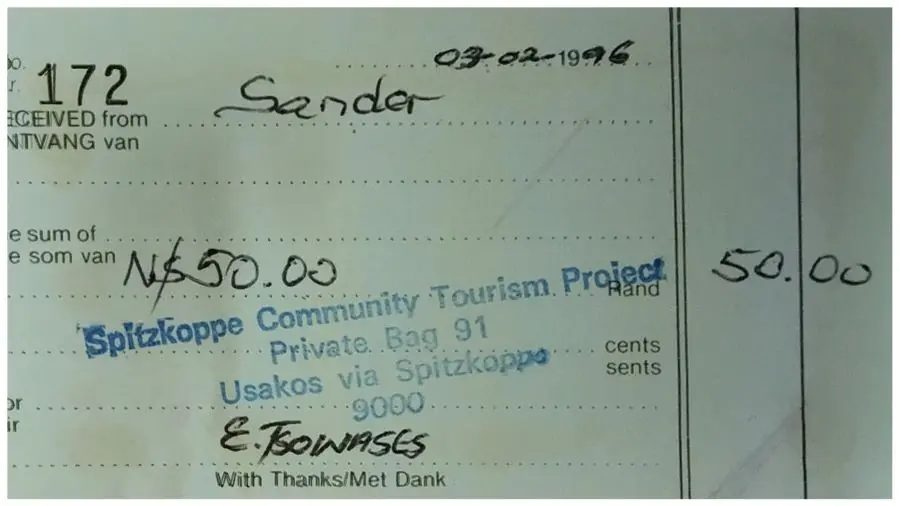 03-02-1996
172
Sander
ECEIVED from
NTVANG van
e sum of
e som van N$50.00 50.00
Rand
Spitzkoppe Community Tourism Project
Private Bag 91
cents
Usakos via Spitzkoppe
sents
9000
or
ir
E. TSOWASES
With Thanks/Met Dank